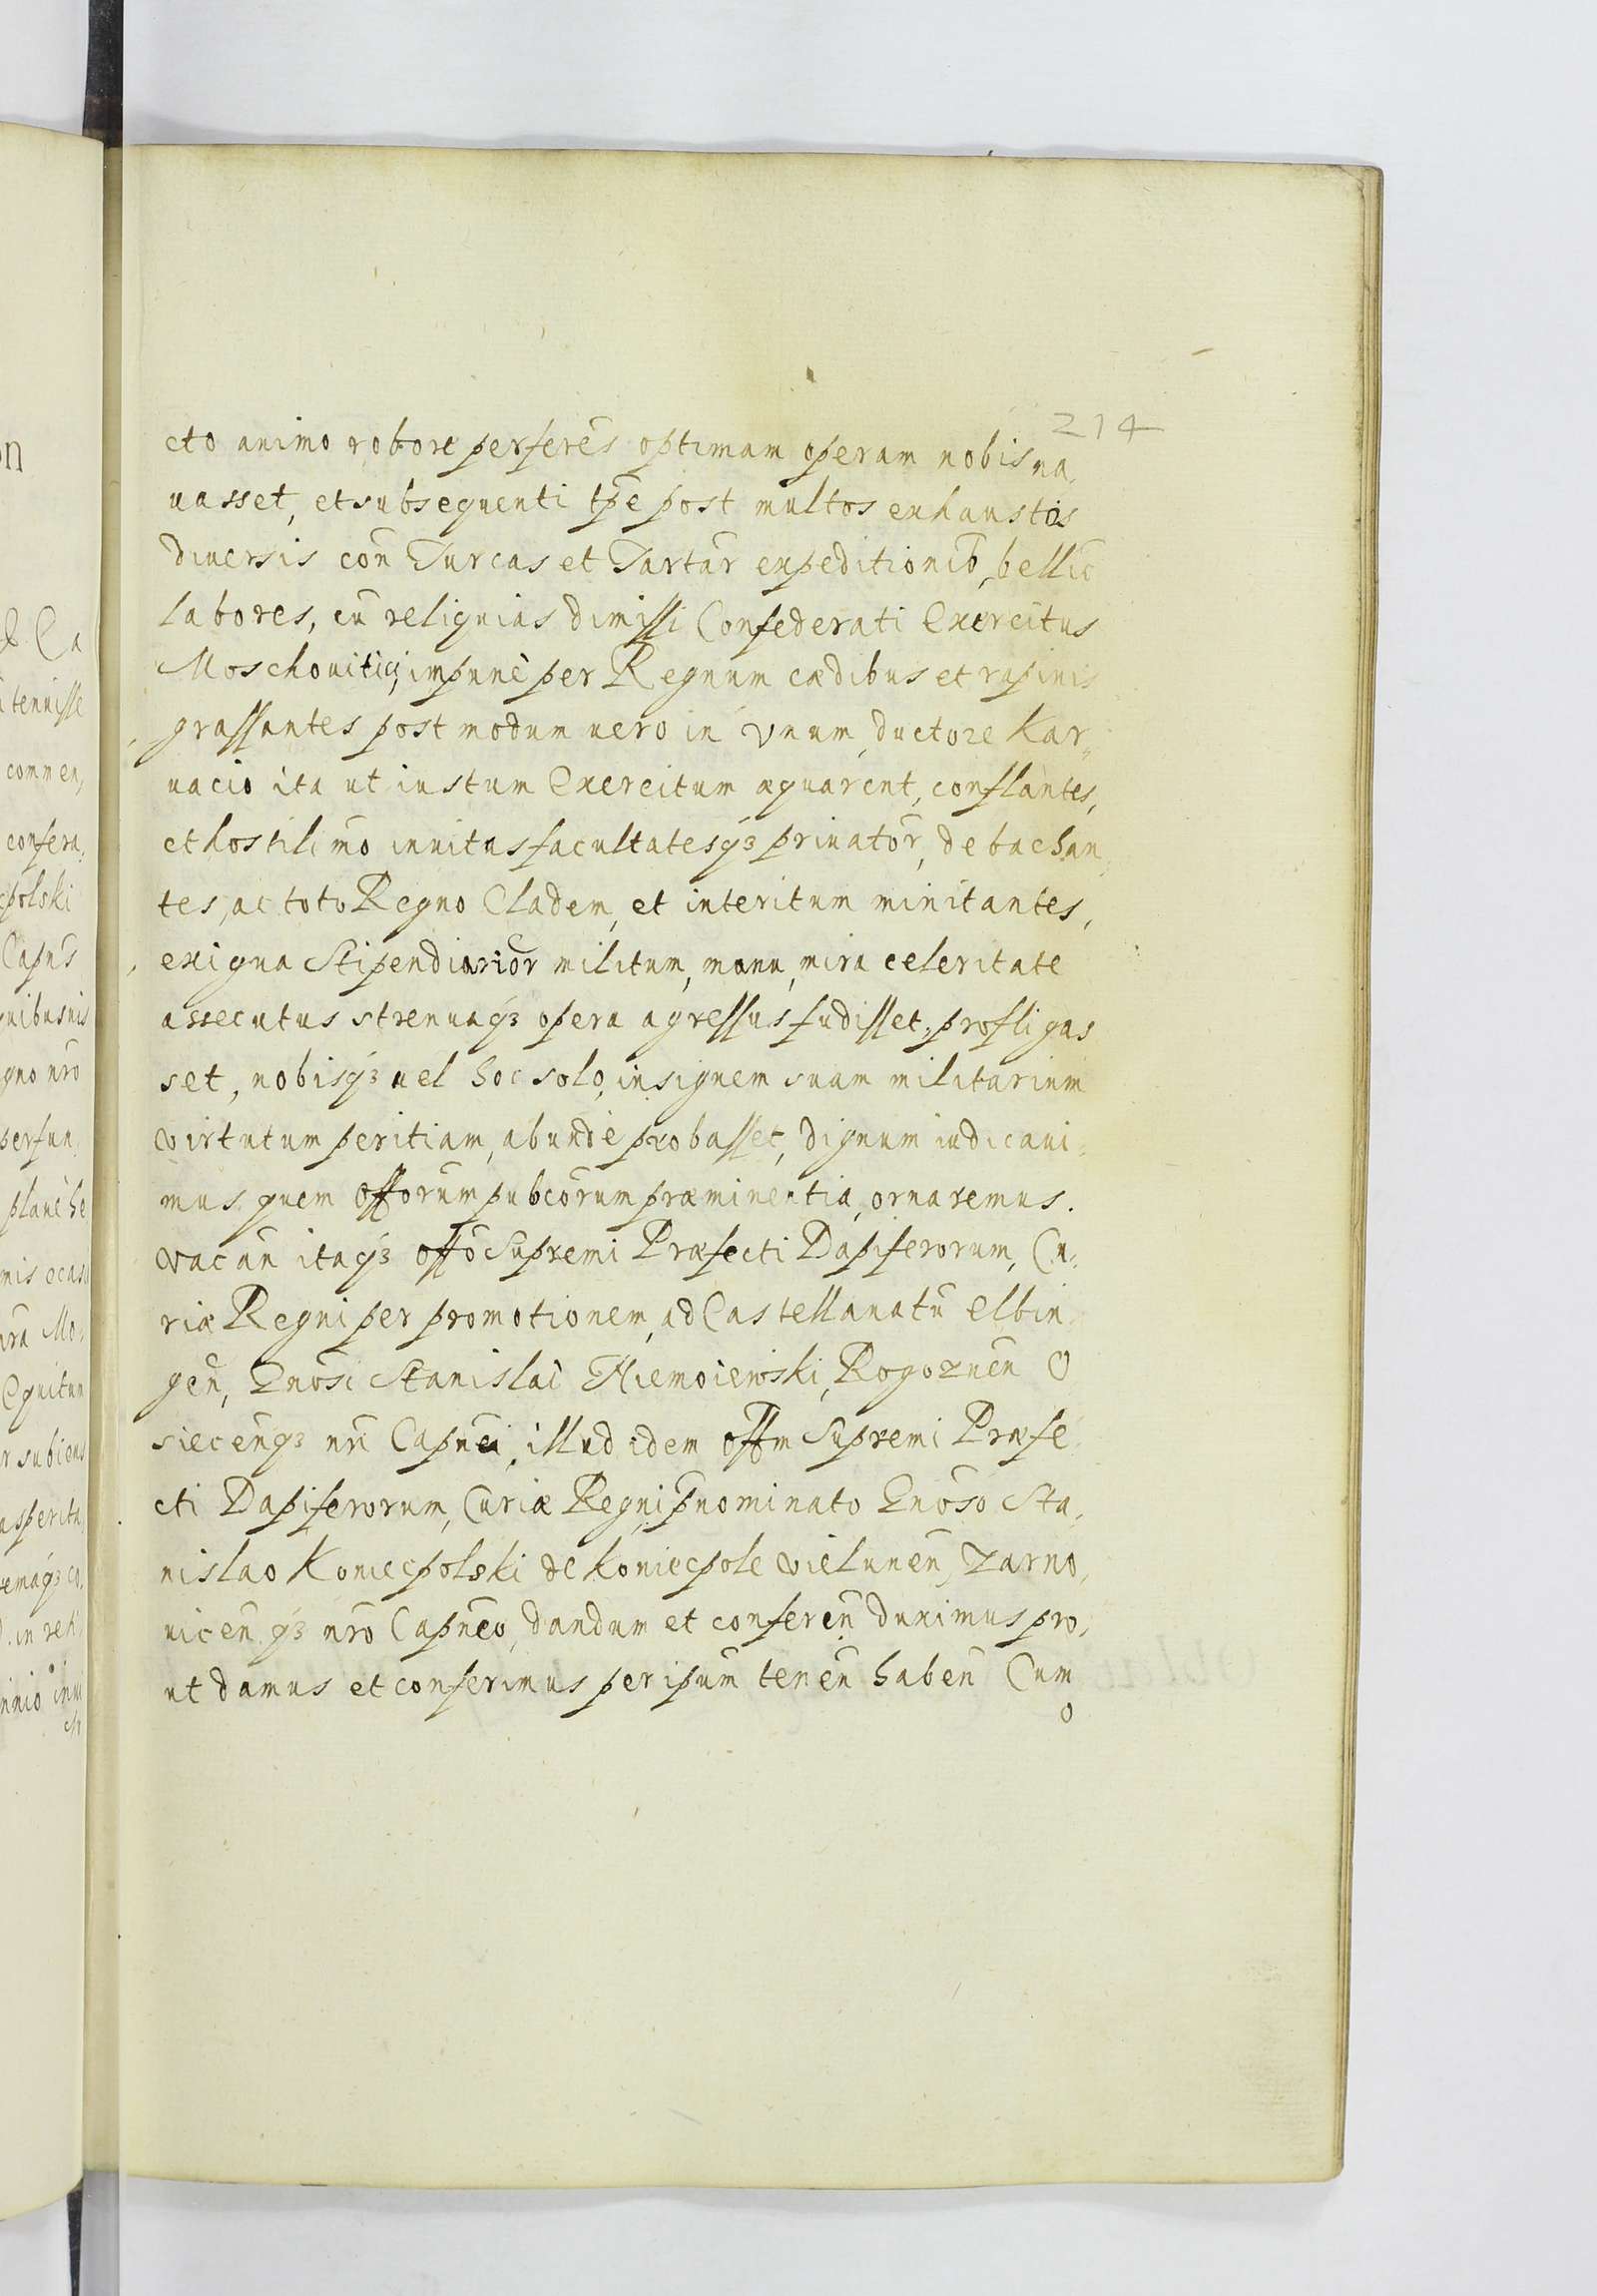 214
cto animo robore perferēs optimam operam nobis na,
uasset, et subsequenti tp̄e post multos exhaustos
diuersis con̄ Turcas et Tartar̄ expeditionib̄, bellic̄
labores, cū reliquias dimissi Confederati Exercitus
Moschouitici, impunè per Regnum cædibus et rapinis
grassantes post modum uero in vnum, ductore Kar,,
uacio ita ut iustum Exercitum æquarent, conflantes,
et hostili mō in uitas facultatesqȝ priuator̄, debachan,
tes, ac toto Regno Cladem, et interitum minitantes,
exigua Stipendiarior̄ militum, manu, mira celeritate
assecutus strenuaqȝ opera agressus fudisset, profligas
set, nobisqȝ uel hoc solo, insignem suam militarium
virtutum peritiam, abundè probasset, dignum iudicaui,,
mus quem offorum pubcōrum præminentia, ornaremus.
Vacan̄ itaqȝ offō Supremi Præfecti Dapiferorum, Cu,,
riæ Regni per promotionem, ad Castellanatū Elbin
gen̄, Gnōsi Stanislai Niemoiewski, Rogoznen̄ O
siecen̄qȝ nr̄i Capnei, illud idem offm Supremi Præfe
cti Dapiferorum, Curiæ Regni p̄nominato Gnōso Sta,
nislao Koniecpolski de Koniecpole Vielunen̄, Zarno,
uicen̄ qȝ nrō Capneo, dandum et conferen̄ duximus pro,
ut damus et conferimus per ipsum tenen̄ haben̄ Cum
o